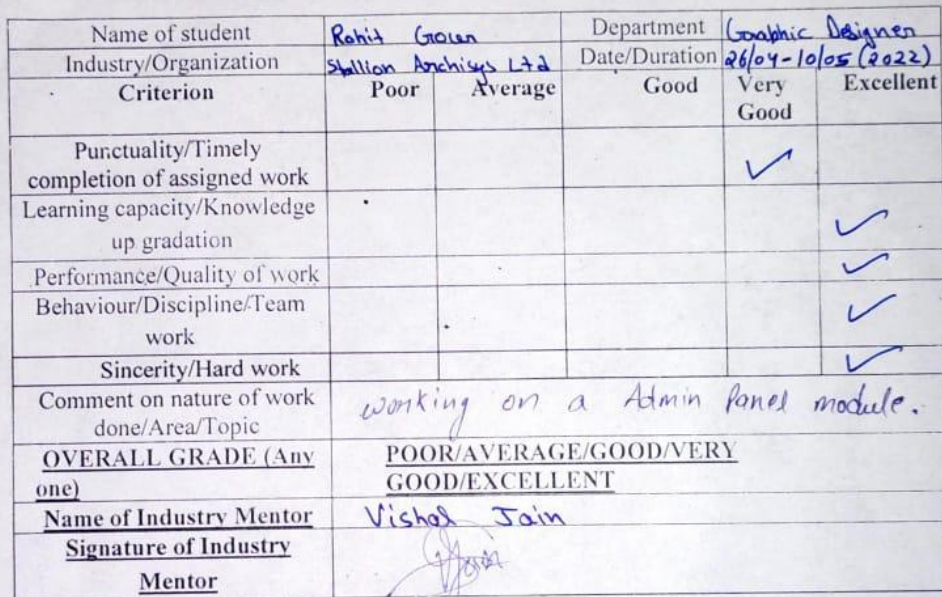 Name of student Rohit Gour Department Graphic Designer
Industry/Organization Stallion Archisys Ltd Date/Duration 26/04-10/05 (2022)
Criterion Poor Average Good Very Good Excellent
Punctuality/Timely
completion of assigned work ✓
Learning capacity/Knowledge
up gradation ✓
Performance/Quality of work ✓
Behaviour/Discipline/Team
work ✓
Sincerity/Hard work ✓
Comment on nature of work
done/Area/Topic
working on a Admin Panel module.
OVERALL GRADE (Any
one)
POOR/AVERAGE/GOOD/VERY
GOOD/EXCELLENT
Name of Industry Mentor Vishal Jain
Signature of Industry
Mentor